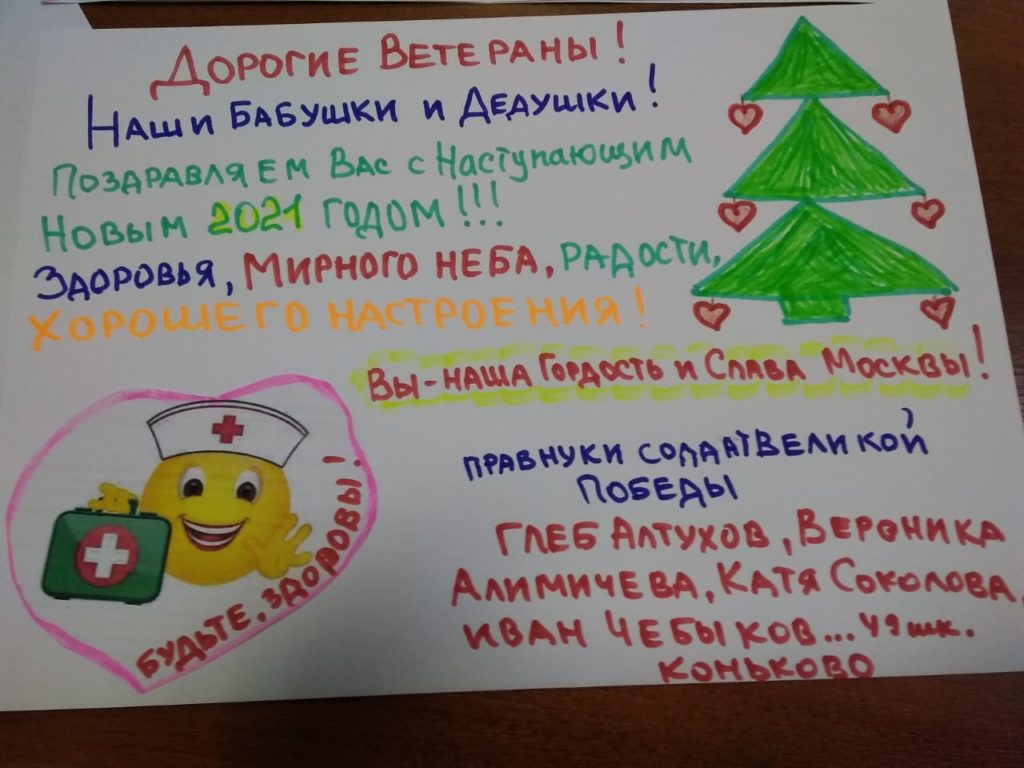 Дорогие Ветераны!
Наши Бабушки и Дедушки!
Поздравляем Вас с Наступающим
Новым 2021 годом!!!
Здоровья, Мирного неба, радости,
хорошего настроения!
Вы-наша Гордость и Слава Москвы!
правнуки солдат Великой
Победы
Глеб Алтухов, Вероника
Алимичева, Катя Соколова,
Иван Чебыков... 49 шк.
Коньково
Будьте, здоровы!